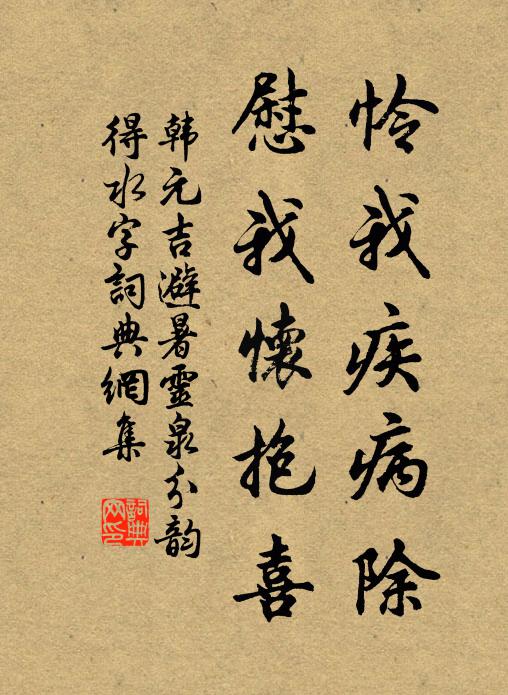 怜我疾病除
慰我懷抱喜
韩元吉避暑靈泉分韵
得水字詞典網集
詞典网印